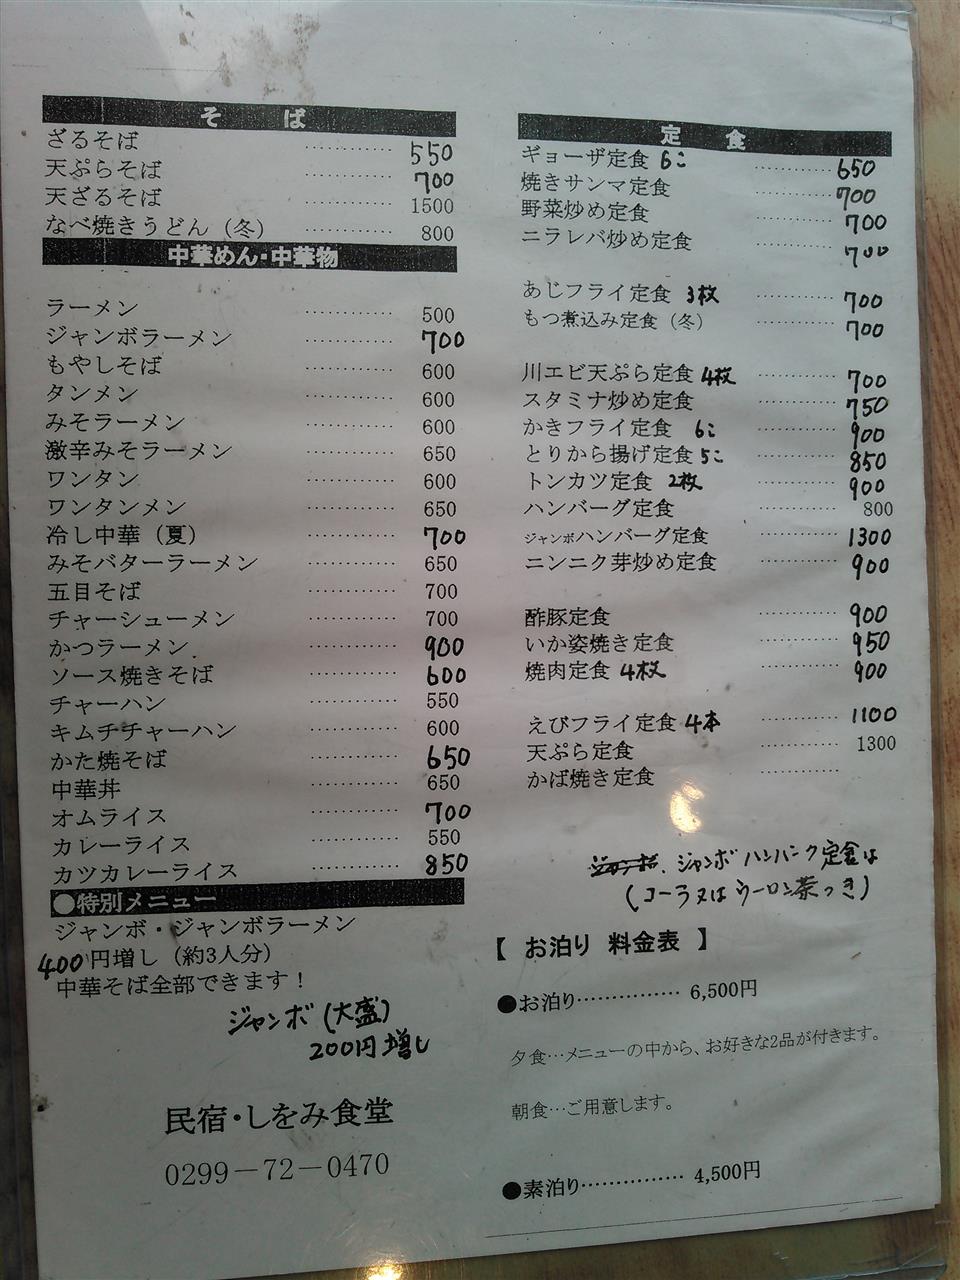 そば
ざるそば ………… 550
天ぷらそば ………… 700
天ざるそば ………… 1500
なべ焼きうどん（冬） ………… 800
中華めん・中華物
ラーメン ………… 500
ジャンボラーメン ………… 700
もやしそば ………… 600
タンメン ………… 600
みそラーメン ………… 600
激辛みそラーメン ………… 650
ワンタン ………… 600
ワンタンメン ………… 650
冷し中華（夏） ………… 700
みそバターラーメン ………… 650
五目そば ………… 700
チャーシューメン ………… 700
かつラーメン ………… 900
ソース焼きそば ………… 600
チャーハン ………… 550
キムチチャーハン ………… 600
かた焼そば ………… 650
中華丼 ………… 650
オムライス ………… 700
カレーライス ………… 550
カツカレーライス ………… 850
●特別メニュー
ジャンボ・ジャンボラーメン
400円増し（約3人分）
中華そば全部できます！
ジャンボ(大盛)
200円増し
民宿・しをみ食堂
0299－72－0470
定食
ギョーザ定食 6こ ………… 650
焼きサンマ定食 ………… 700
野菜炒め定食 ………… 700
ニラレバ炒め定食 ………… 700
あじフライ定食 3枚 ………… 700
もつ煮込み定食（冬） ………… 700
川エビ天ぷら定食 4枚 ………… 700
スタミナ炒め定食 ………… 750
かきフライ定食 6こ ………… 900
とりから揚げ定食 5こ ………… 850
トンカツ定食 2枚 ………… 900
ハンバーグ定食 ………… 800
ジャンボハンバーグ定食 ………… 1300
ニンニク芽炒め定食 ………… 900
酢豚定食 ………… 900
いか姿焼き定食 ………… 950
焼肉定食 4枚 ………… 900
えびフライ定食 4本 ………… 1100
天ぷら定食 ………… 1300
かば焼き定食 …………
ジャンボ ハンバーグ定食は
(コーラ又はウーロン茶つき)
【 お泊り 料金表 】
●お泊り…………… 6,500円
夕食…メニューの中から、お好きな2品が付きます。
朝食…ご用意します。
●素泊り…………… 4,500円